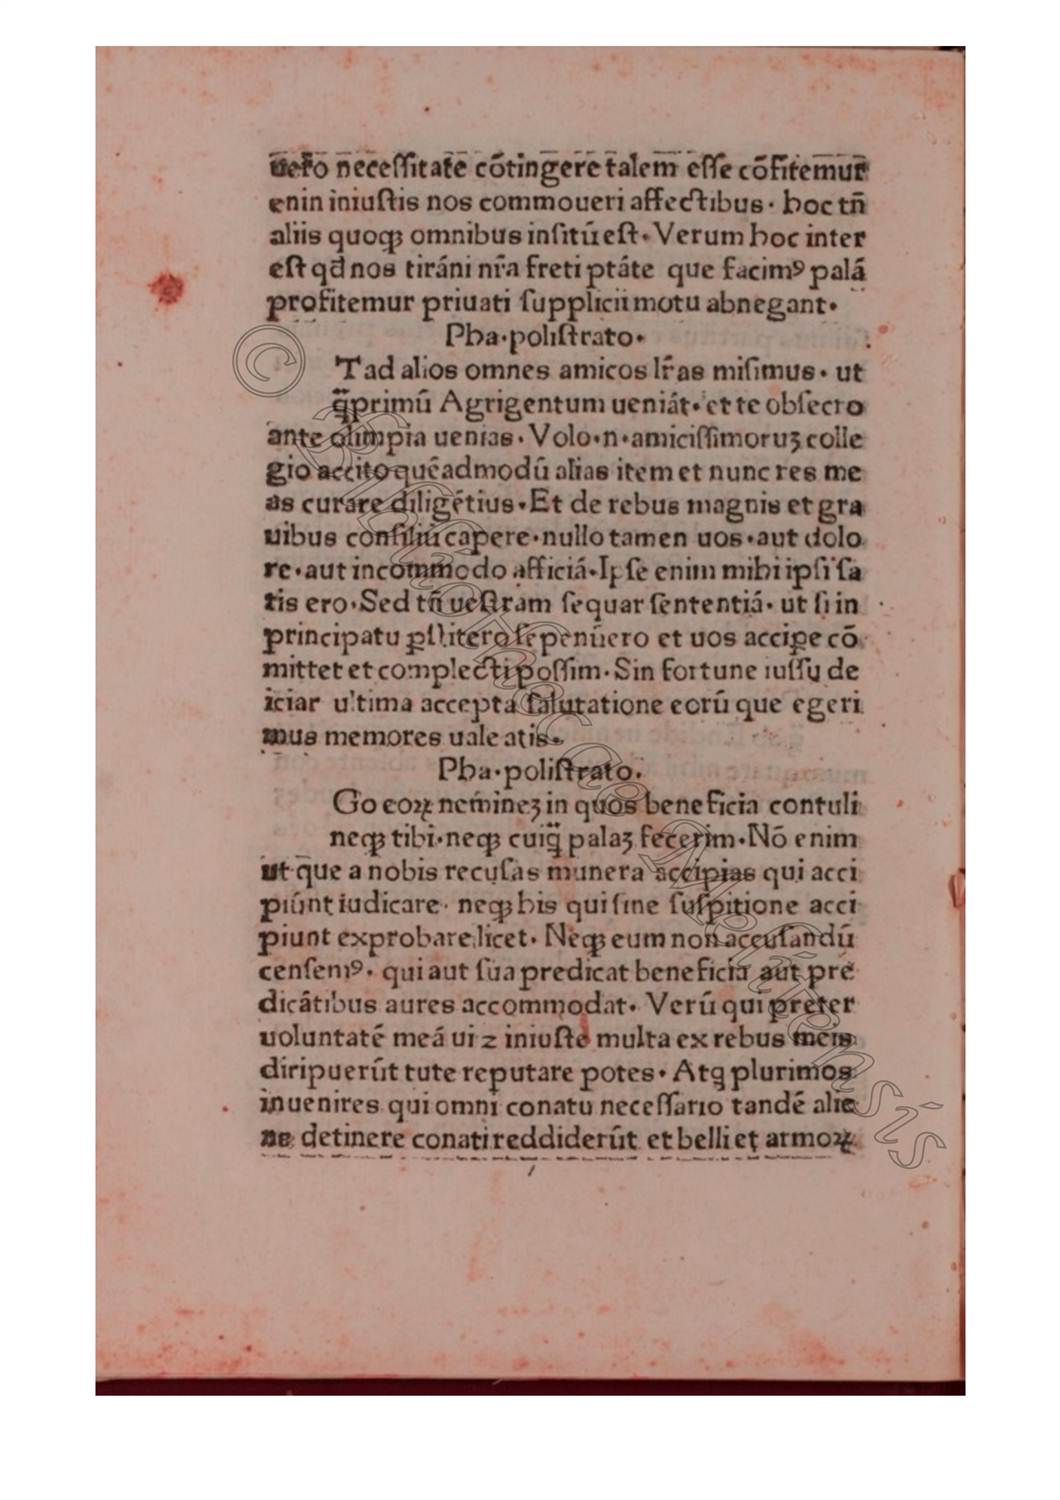 uero necessitate cōtingere talem esse cōfitemur
enin iniustis nos commoueri affectibus · hoc tn̄
aliis quoqꝫ omnibus insitū est · Verum hoc inter
est qđ nos tiráni nr̄a freti ptáte que facimꝰ palā
profitemur priuati supplicii motu abnegant ·
Pha · polistrato ·
T ad alios omnes amicos lr̄as misimus · ut
q̄primū Agrigentum ueniát · et te obsecro
ante olimpia uenias · Volo · n · amicissimoruꝫ colle
gio accito quēadmodū alias item et nunc res me
as curare diligētius · Et de rebus magnis et gra
uibus consiliū capere · nullo tamen uos · aut dolo
re · aut incommodo afficiā · Ipse enim mihi ipsi sa
tis ero · Sed tn̄ uestram sequar sententiā · ut si in
principatu ꝑstitero sepenūero et uos accipe cō
mittet et complecti possim · Sin fortune iussu de
iciar ultima accepta salutatione eorū que egeri
mus memores uale atis ·
Pha · polistrato ·
Go eoꝝ nemineꝫ in quos beneficia contuli
neqꝫ tibi · neqꝫ cuiq̄ palaꝫ fecerim · Nō enim
ut que a nobis recusas munera accipias qui acci
piūnt iudicare · neqꝫ his qui sine suspitione acci
piunt exprobare licet · Neqꝫ eum non accusandū
censemꝰ · qui aut sua predicat beneficia aut pre
dicātibus aures accommodat · Verū qui preter
uoluntatē meā ui ⁊ iniuste multa ex rebus meis
diripuerūt tute reputare potes · Atqꝫ plurimos
inuenires qui omni conatu necessario tandē alie
ne detinere conati reddiderūt et belli et armoꝝ
© Biblioteca de Mafrensis